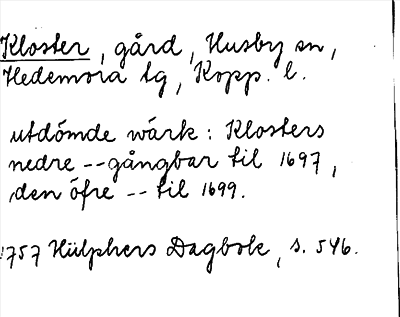 Kloster, gård, Husby sn,
Hedemora tg, Kopp. l.
utdömde wärk: Klosters
nedre -- gångbar til 1697,
den öfre -- til 1699.
1757 Hülphers Dagbok, s. 546.